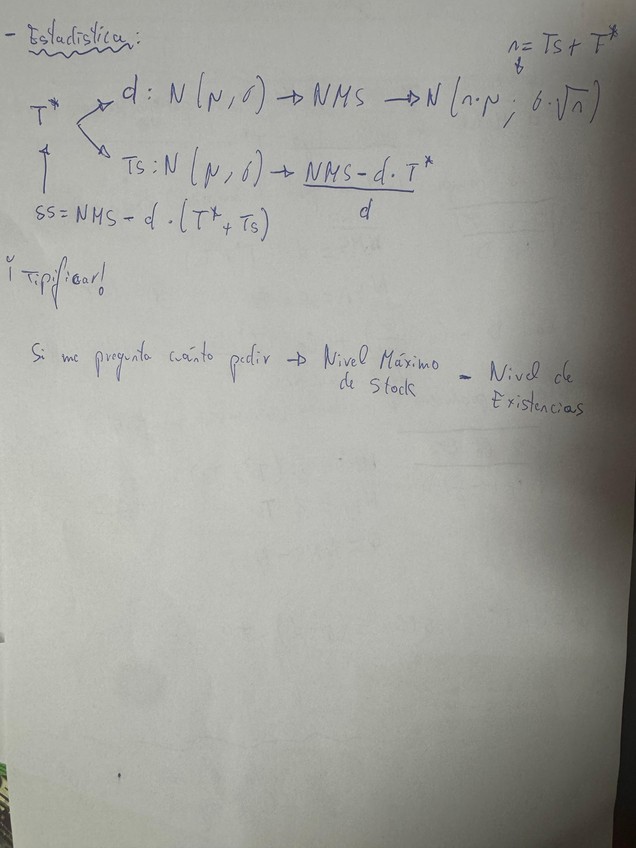 - Estadística:
n = Ts + T*
T*
d: N(μ, σ) → NMS → N(n·μ ; σ·√n)
Ts: N(μ, σ) → NMS - d · T*
d
SS = NMS - d · (T* + Ts)
¡Tipificar!
Si me pregunta cuánto pedir → Nivel Máximo
de Stock
- Nivel de
Existencias